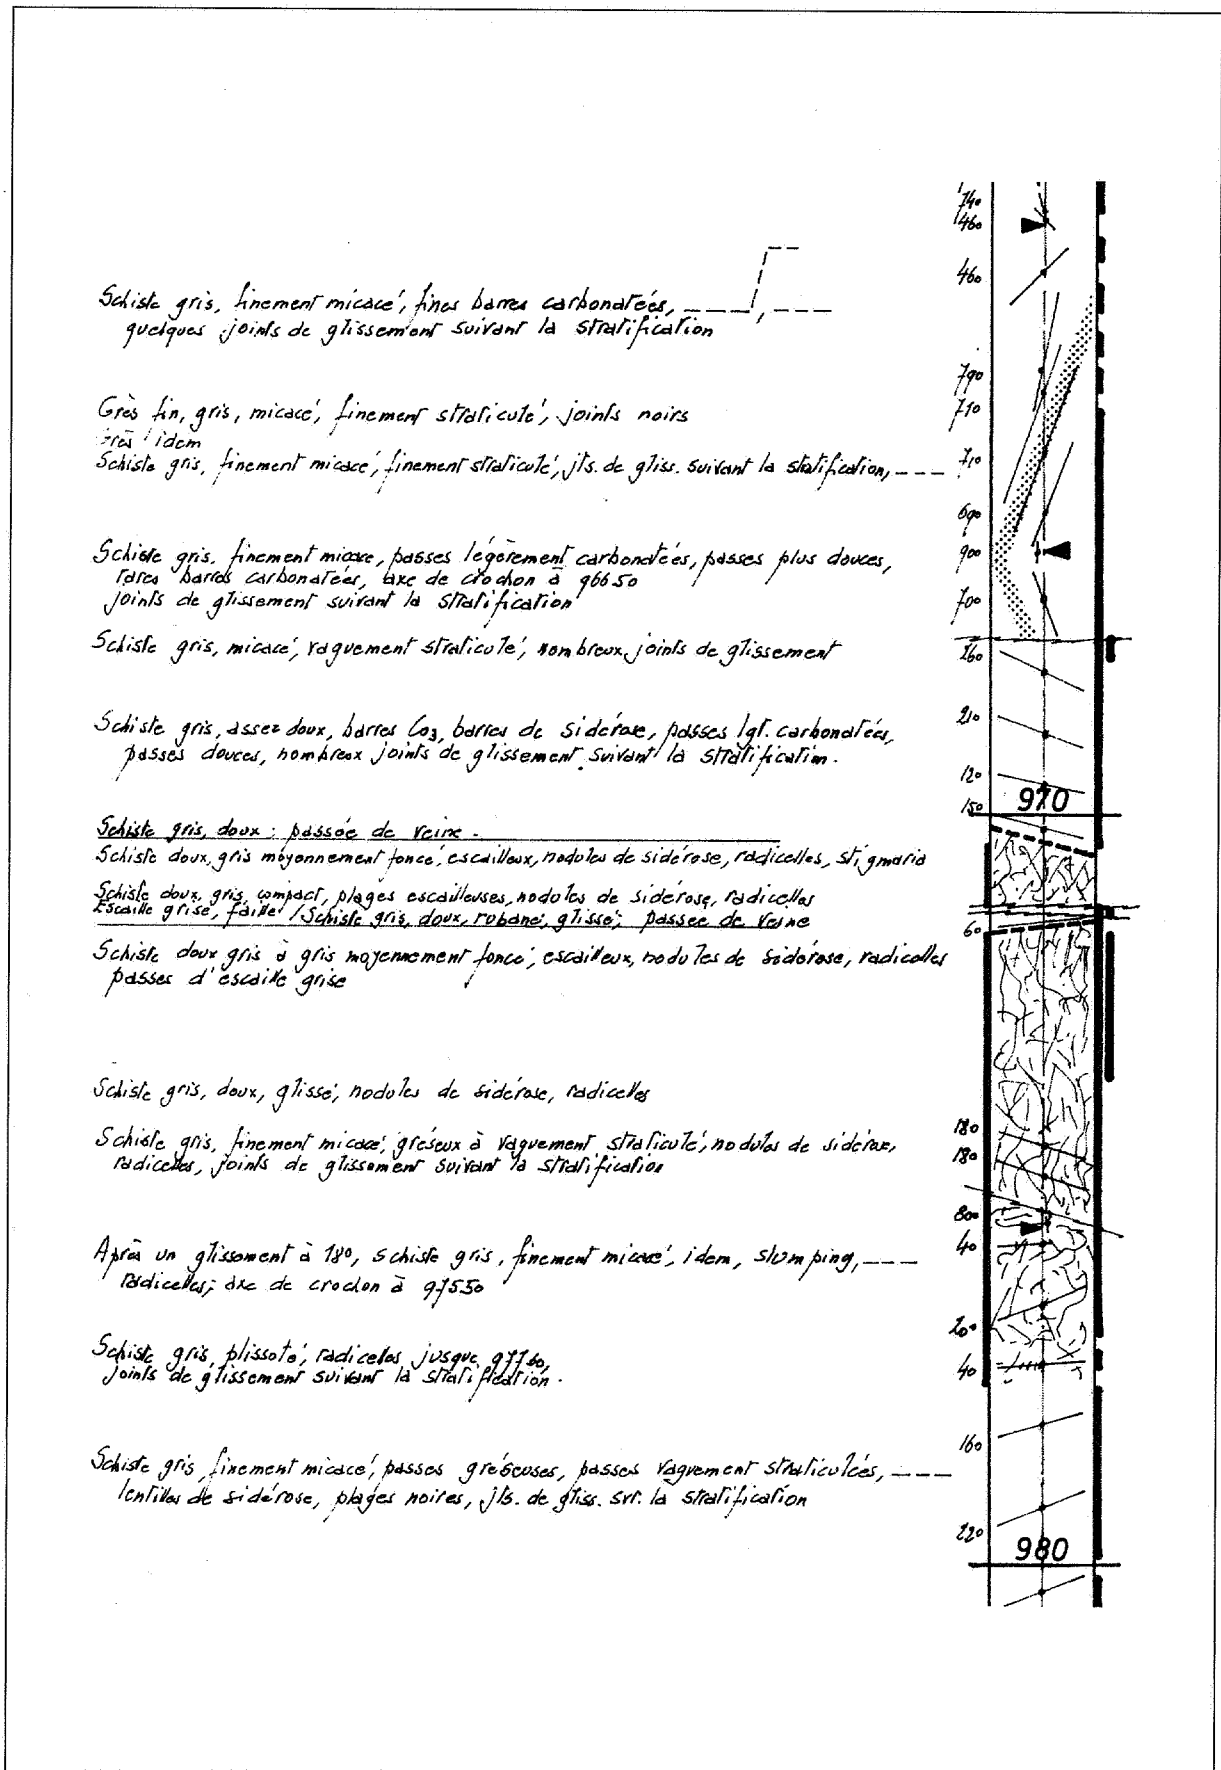 74°
46°
46°
Schiste gris, finement micacé, fines barres carbonatées, ____,___
quelques joints de glissement suivant la stratification
79°
Grès fin, gris, micacé, finement straticulé, joints noirs
71°
Grès idem
Schiste gris, finement micacé, finement straticulé, jts. de gliss. suivant la stratification, ___
71°
69°
Schiste gris, finement micacé, passes légèrement carbonatées, passes plus douces,
90°
rares barres carbonatées, axe de crochon à 966 50
joints de glissement suivant la stratification
70°
Schiste gris, micacé, vaguement straticulé, nombreux joints de glissement
26°
Schiste gris, assez doux, barres Co3, barres de sidérose, passes lgt. carbonatées,
21°
passes douces, nombreux joints de glissement suivant la stratification.
12°
15° 970
Schiste gris, doux : passée de veine.
Schiste doux, gris moyennement foncé, escailleux, nodules de sidérose, radicelles, stigmaria
Schiste doux, gris, compact, plages escailleuses, nodules de sidérose, radicelles
Escaille grise, faille / Schiste gris, doux, rubané, glissé; passée de veine
6°
Schiste doux gris à gris moyennement foncé, escailleux, nodules de sidérose, radicelles
passes d'escaille grise
Schiste gris, doux, glissé, nodules de sidérose, radicelles
18°
Schiste gris, finement micacé, gréseux à vaguement straticulé, nodules de sidérose,
18°
radicelles, joints de glissement suivant la stratification
80°
4°
Après un glissement à 18°, schiste gris, finement micacé, idem, slumping, ___
radicelles, axe de crochon à 975 50
20°
Schiste gris, plissoté, radicelles jusque 977 60,
joints de glissement suivant la stratification.
4°
16°
Schiste gris finement micacé, passes gréseuses, passes vaguement straticulées, ___
lentilles de sidérose, plages noires, jts. de gliss. svt. la stratification
22°
980